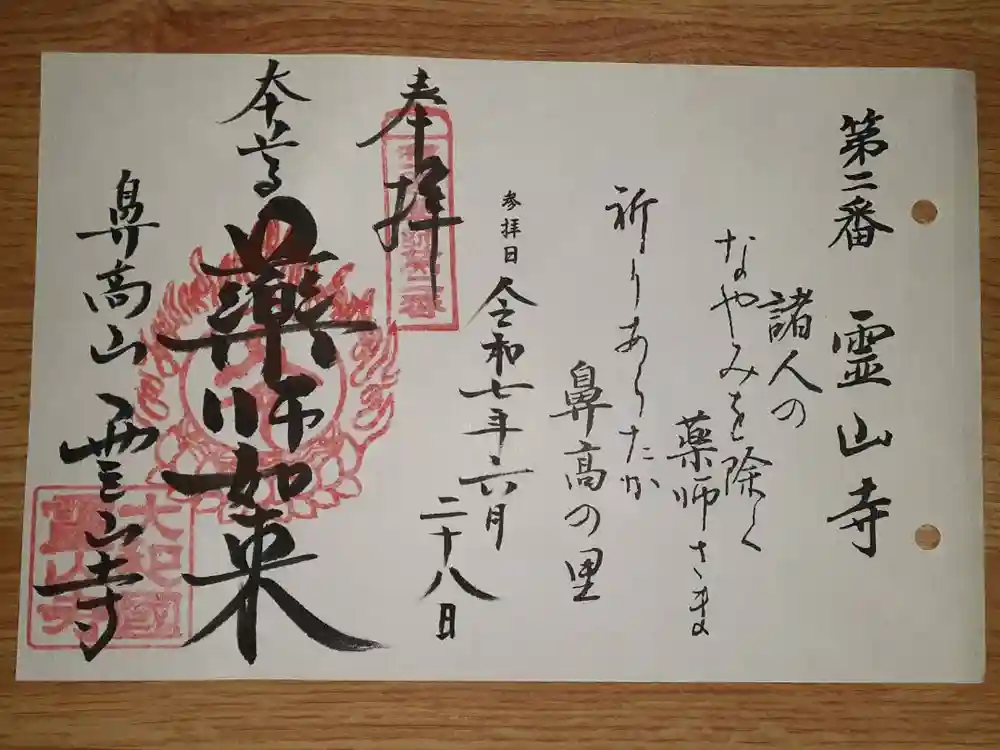 第二番 霊山寺
諸人の
なやみを除く
薬師さま
祈りあらたか
鼻高の里
参拝日 令和七年六月
二十八日
奉拝
本尊 薬師如来
鼻高山 霊山寺
大和國
霊山寺